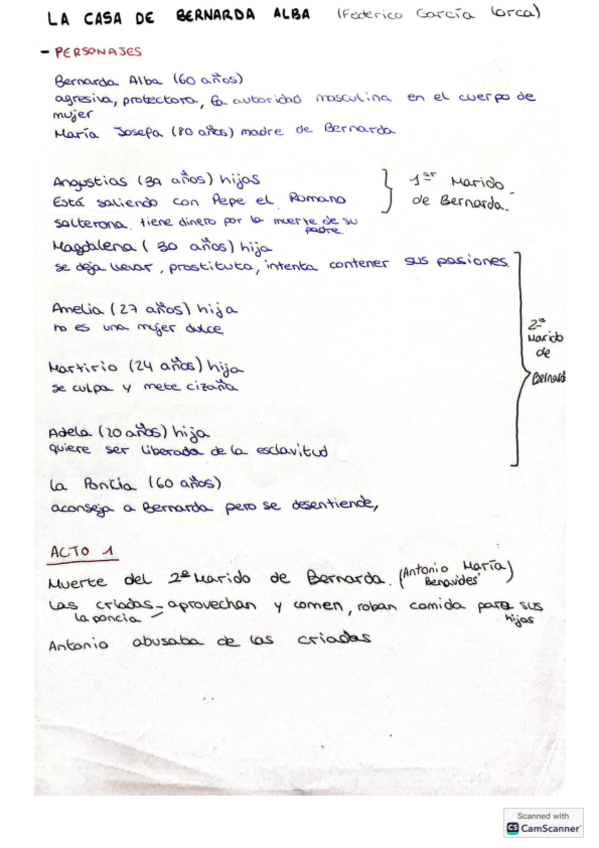 LA CASA DE BERNARDA ALBA (Federico García Lorca)
- PERSONAJES
Bernarda Alba (60 años)
agresiva, protectora, la autoridad masculina en el cuerpo de
mujer
María Josefa (80 años) madre de Bernarda
Angustias (39 años) hijas
Está saliendo con Pepe el Romano
solterona. tiene dinero por la muerte de su
padre.
1er Marido
de Bernarda.
Magdalena (30 años) hija
se deja llevar, prostituta, intenta contener sus pasiones.
Amelia (27 años) hija
no es una mujer dulce
Martirio (24 años) hija
se culpa y mete cizaña
Adela (20 años) hija
quiere ser liberada de la esclavitud
2º
Marido
de
Bernard
La Poncia (60 años)
aconseja a Bernarda pero se desentiende,
ACTO 1
Muerte del 2º Marido de Bernarda. (Antonio María
Benavides)
Las criadas - aprovechan y comen, roban comida para sus
la poncia - hijos
Antonio abusaba de las criadas
Scanned with
CS CamScanner